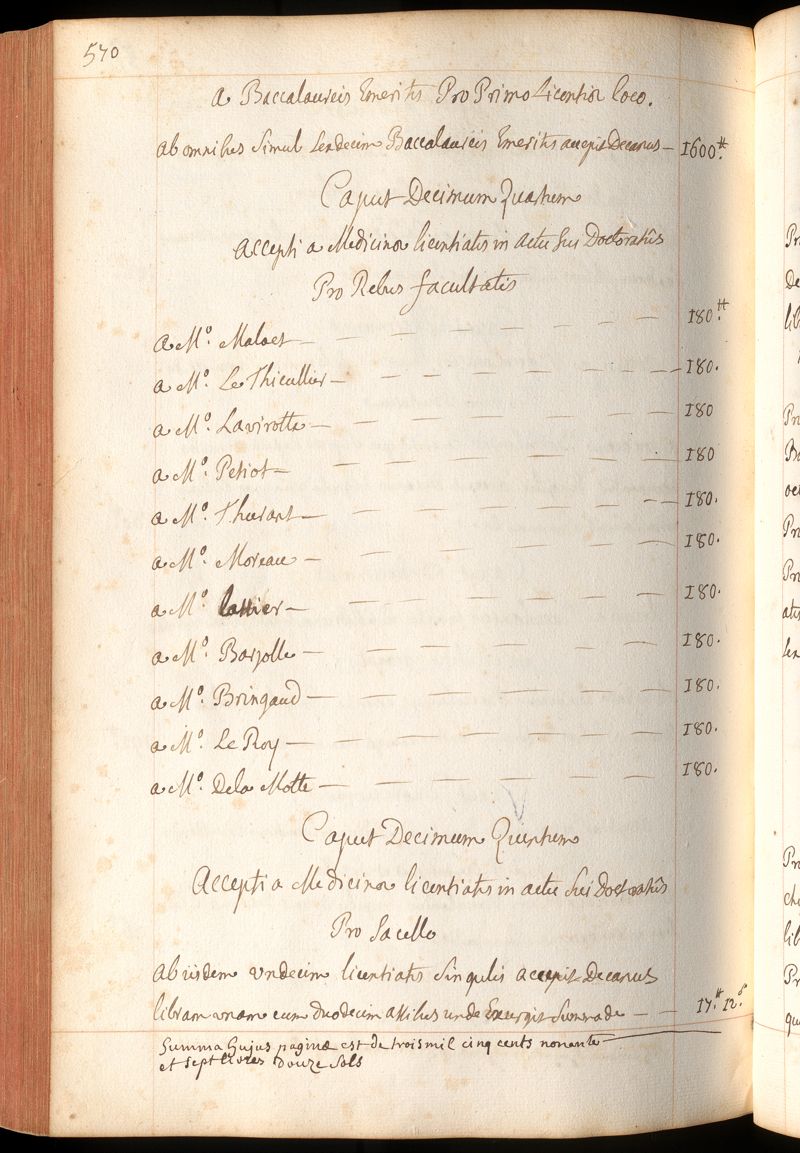 570
a Baccalaureis Emeritis Pro Primo Licentiæ loco.
ab omnibus simul sexdecim Baccalaureis Emeritis accepit Decanus — 1600.ᵗᵗ
Caput Decimum Quartum
Accepti a Medicinæ licentiatis in actu sui Doctoratûs
Pro Rebus facultatis
a Mᵒ. Maloet — 180.ᵗᵗ
a Mᵒ. Le Thieullier — 180.
a Mᵒ. Lavirotte — 180
a Mᵒ. Petiot — 180
a Mᵒ. Thurant — 180.
a Mᵒ. Moreau — 180.
a Mᵒ. — 180.
a Mᵒ. Barjolle — 180.
a Mᵒ. Bringaud — 180.
a Mᵒ. Le Roy — 180.
a Mᵒ. Dela Motte — 180.
Caput Decimum Quintum
Accepti a Medicinæ licentiatis in actu sui Doctoratûs
Pro Sacello
ab iisdem undecim licentiatis singulis accepit Decanus
libram unam cum duodecim assibus unde Exurgit Summa de — 17.ᵗᵗ 12.ˢ
Summa hujus paginæ est de trois mil cinq cents nonante
et sept livres Douze sols